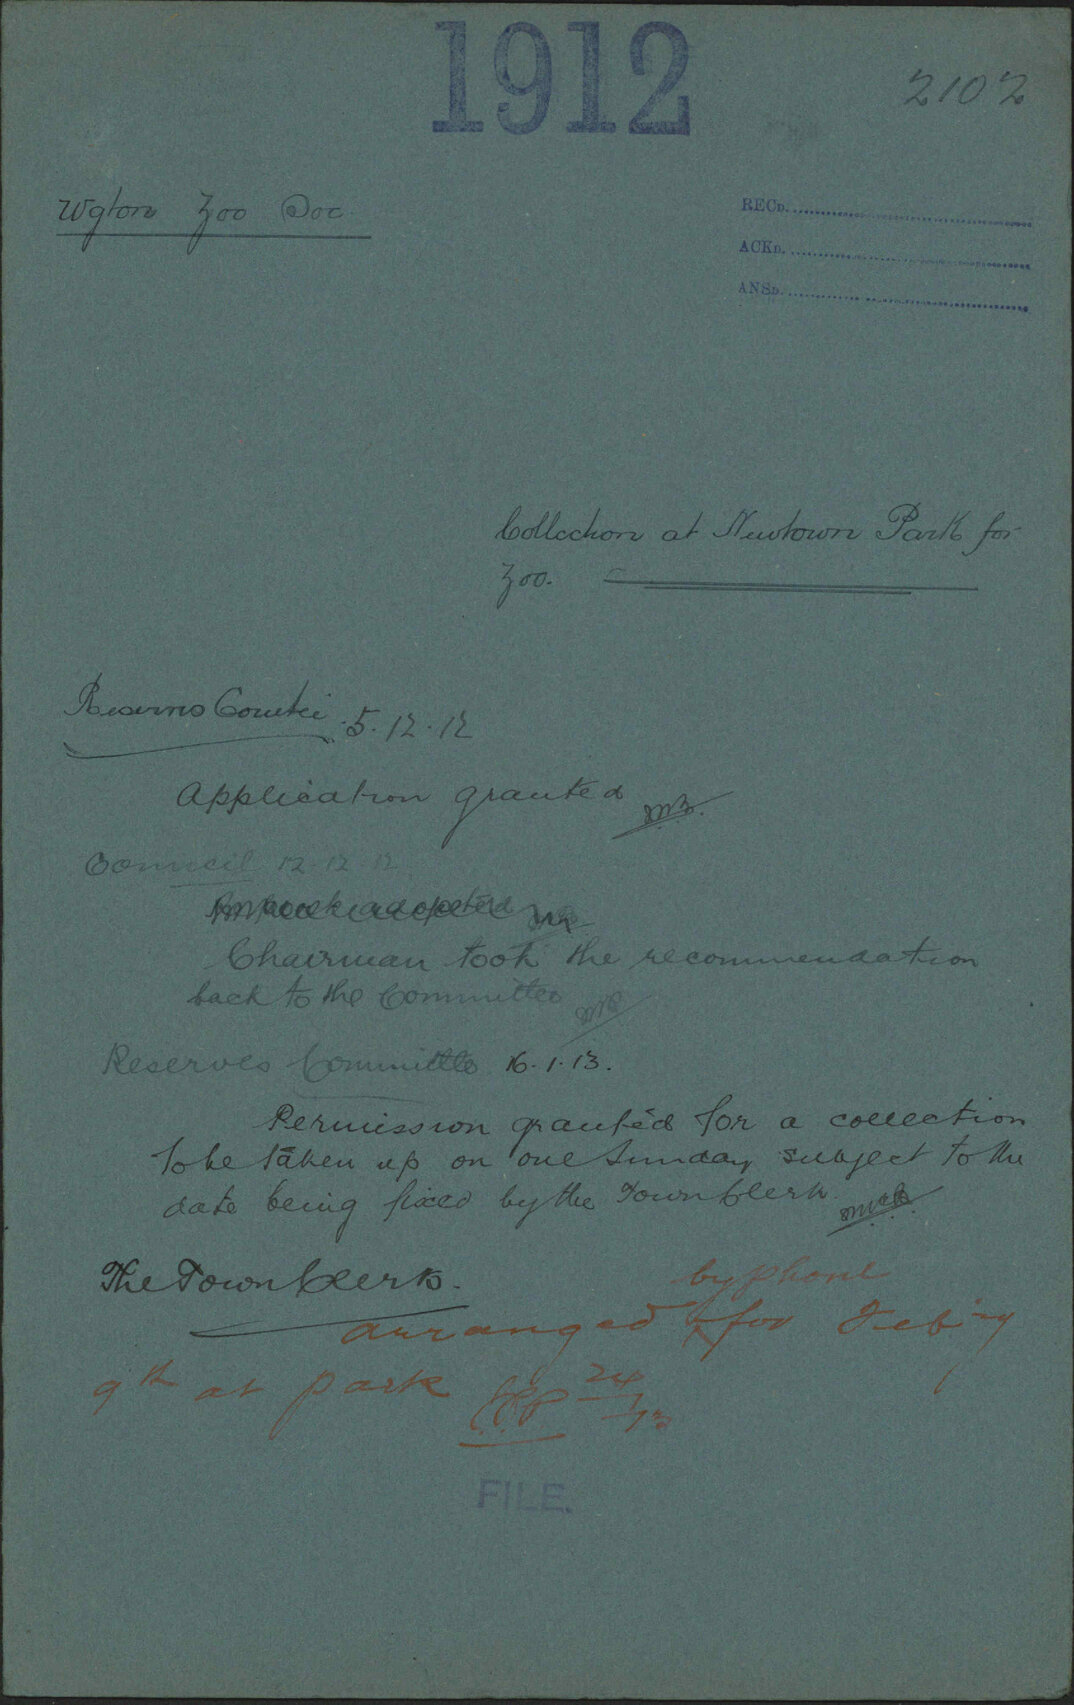 1912
2102
Wgton Zoo Soc.
RECD.
ACKD.
ANSD.
Collection at Newtown Park for
Zoo.
Reserves Comtee 5.12.12
Application granted
Council 12.12.12
adopted
Chairman took the recommendation
back to the Committee
Reserves Committee 16.1.13.
Permission granted for a collection
to be taken up on one Sunday subject to the
date being fixed by the Town Clerk
The Town Clerk.
by phone
arranged for Feb'ry
9th at park 24/1/13
FILE.